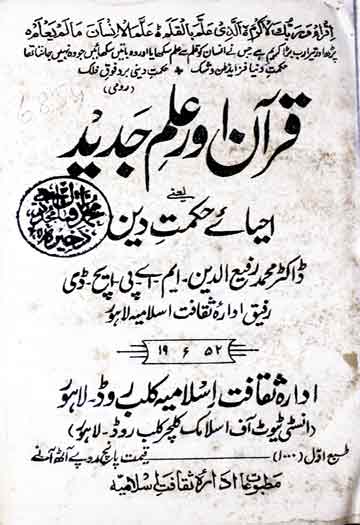 اِقْرَاْ وَرَبُّكَ الْاَكْرَمُ الَّذِیْ عَلَّمَ بِالْقَلَمِ عَلَّمَ الْاِنْسَانَ مَا لَمْ یَعْلَمْ
پڑھ اور تیرا رب بڑا کریم ہے جس نے انسان کو قلم سے علم سکھایا اور وہ باتیں سکھائیں جو وہ نہیں جانتا تھا
حکمت دنیا فزاید ظن و شک + حکمت دینی برد فوق فلک
(رومی)
قرآن اور علم جدید
یعنی
احیائے حکمت دین
ڈاکٹر محمد رفیع الدین۔ ایم۔ اے۔ پی۔ ایچ۔ ڈی
رفیق ادارۂ ثقافت اسلامیہ لاہور
۱۹۵۲ء
ادارہ ثقافت اسلامیہ کلب روڈ۔ لاہور
(انسٹی ٹیوٹ آف اسلامک کلچر کلب روڈ۔ لاہور)
طبع اول (۱۰۰۰) قیمت پانچ روپے آٹھ آنے
مطبوعات ادارۂ ثقافت اسلامیہ